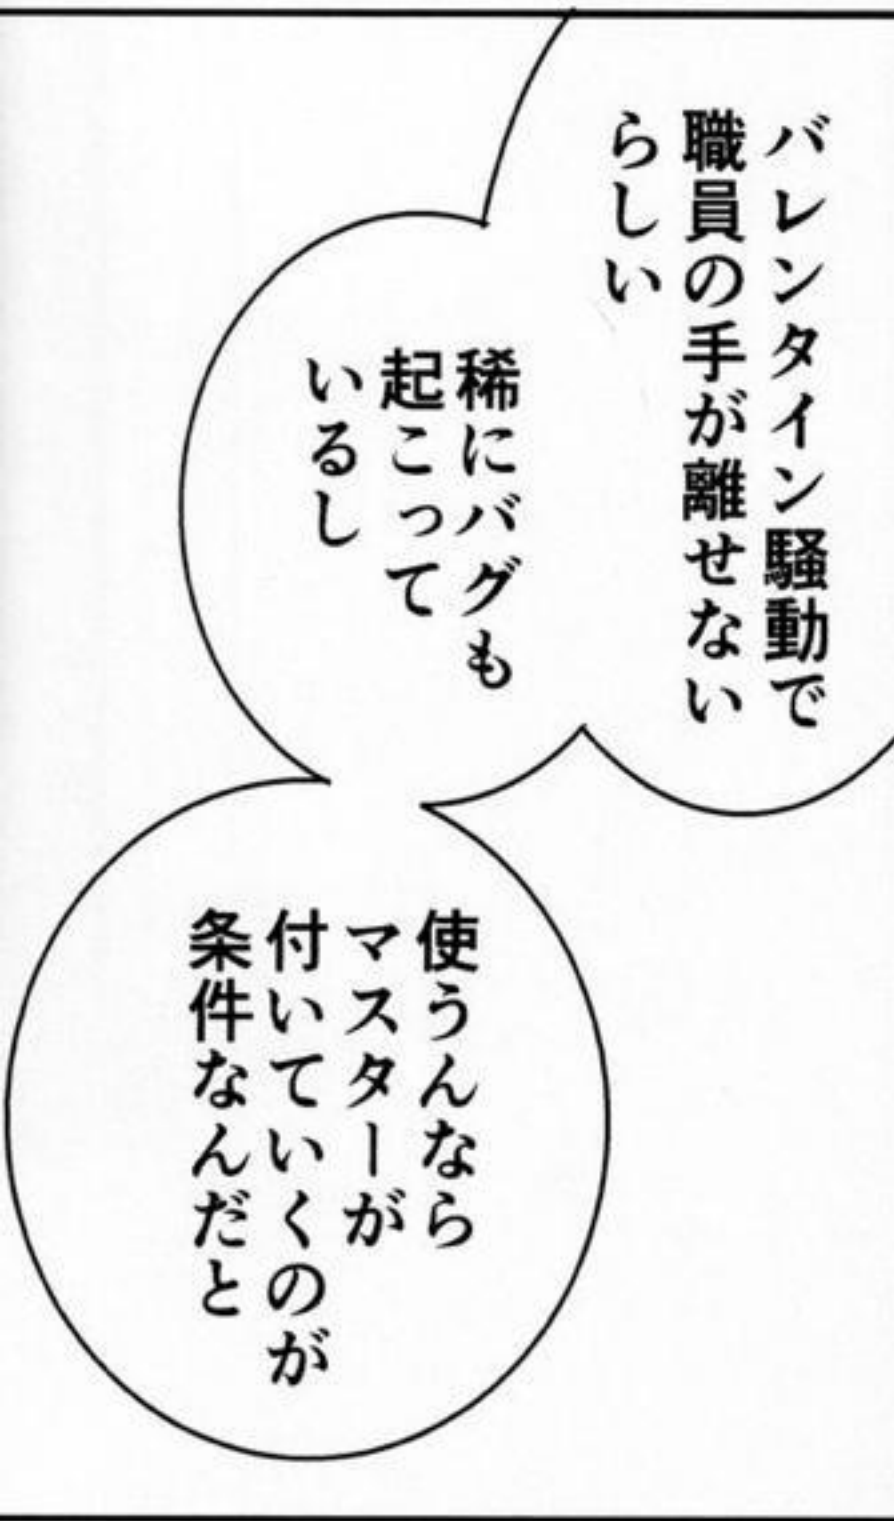 バレンタイン騒動で
職員の手が離せない
らしい
稀にバグも
起こって
いるし
使うんなら
マスターが
付いていくのが
条件なんだと